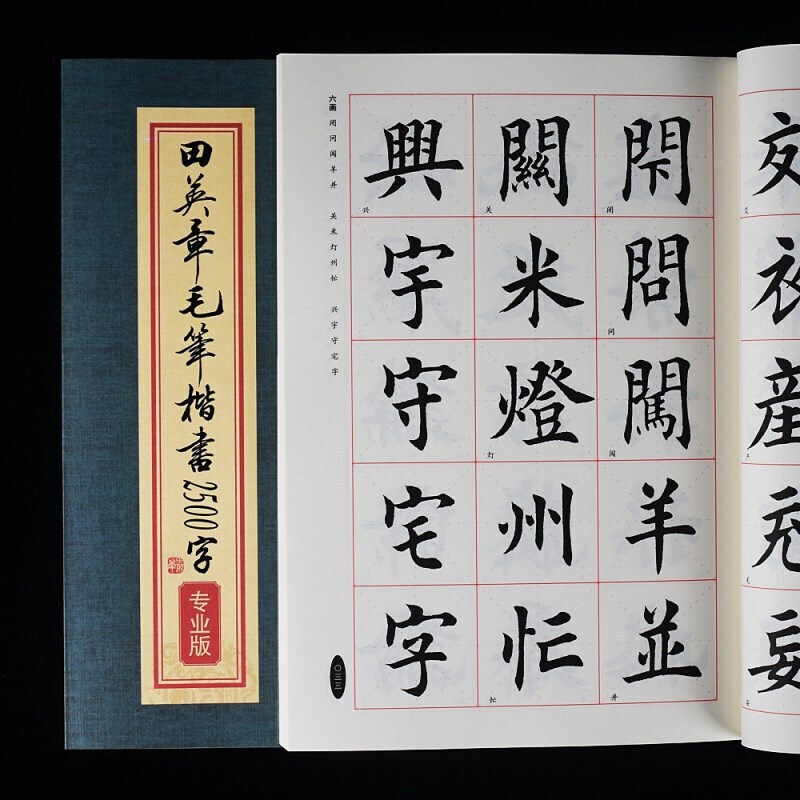 田英章毛筆楷書2500字
专业版
六画 闭问闯羊并 关米灯州忙 兴宇守宅字
閇問闖羊並
闭
问
闯
并
關米燈州忙
关
灯
忙
興宇守宅字
兴
〇三三